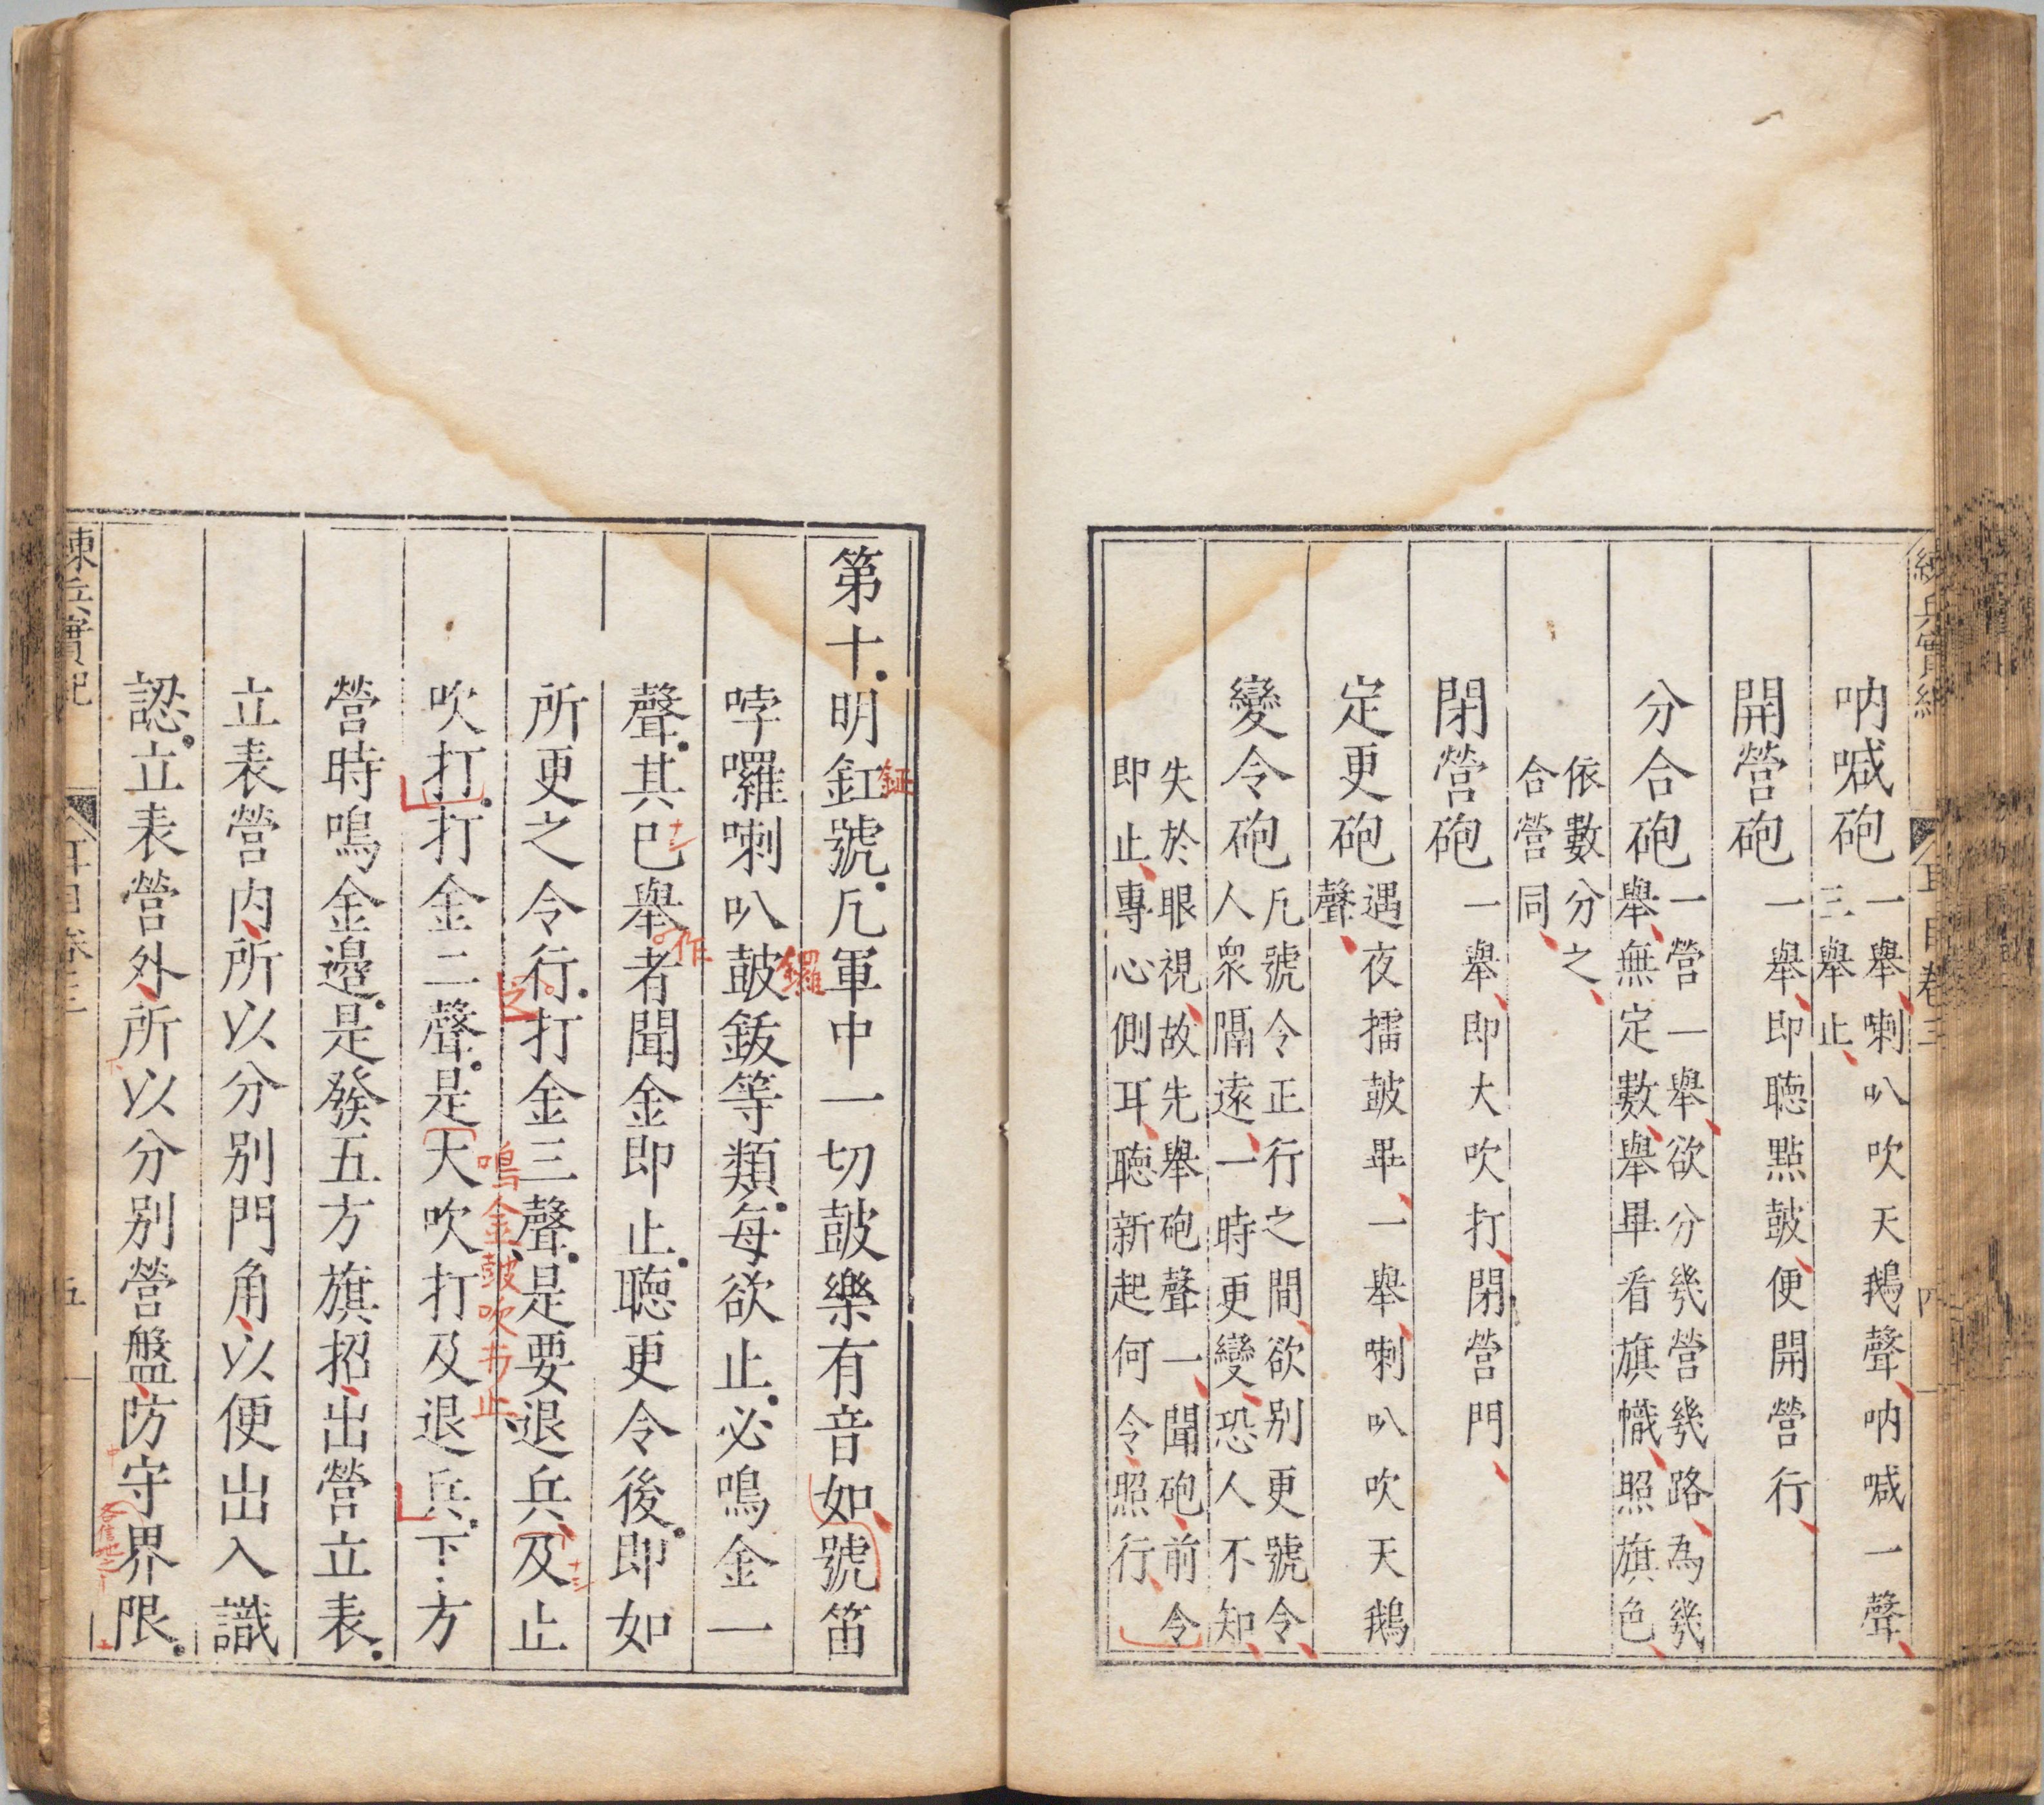 呐喊砲 一舉喇叭吹天鵝聲呐喊一聲
三舉止
開營砲 一舉即聽點鼓便開營行
分合砲 一營一舉欲分幾營幾路為幾
舉無定數舉畢看旗幟照旗色
依數分之
合營同
閉營砲 一舉即大吹打閉營門
定更砲 遇夜擂鼓畢一舉喇叭吹天鵝
聲
變令砲 凡號令正行之間欲别更號令
人衆隔遠一時更變恐人不知
失於眼視故先舉砲聲一聞砲前令
即止專心側耳聽新起何令照行
第十明釭號凡軍中一切鼓樂有音如號笛
鉦
哱囉喇叭鼓鈸等類每欲止必鳴金一
鑼
聲其已舉者聞金即止聽更令後即如
作
所更之令行打金三聲是要退兵及止
之
吹打打金二聲是大吹打及退兵下方
鳴金鼓吹打止
營時鳴金邉是發五方旗招出營立表
立表營内所以分别門角以便出入識
認立表營外所以分别營盤防守界限
練兵實紀
卷三
四
五